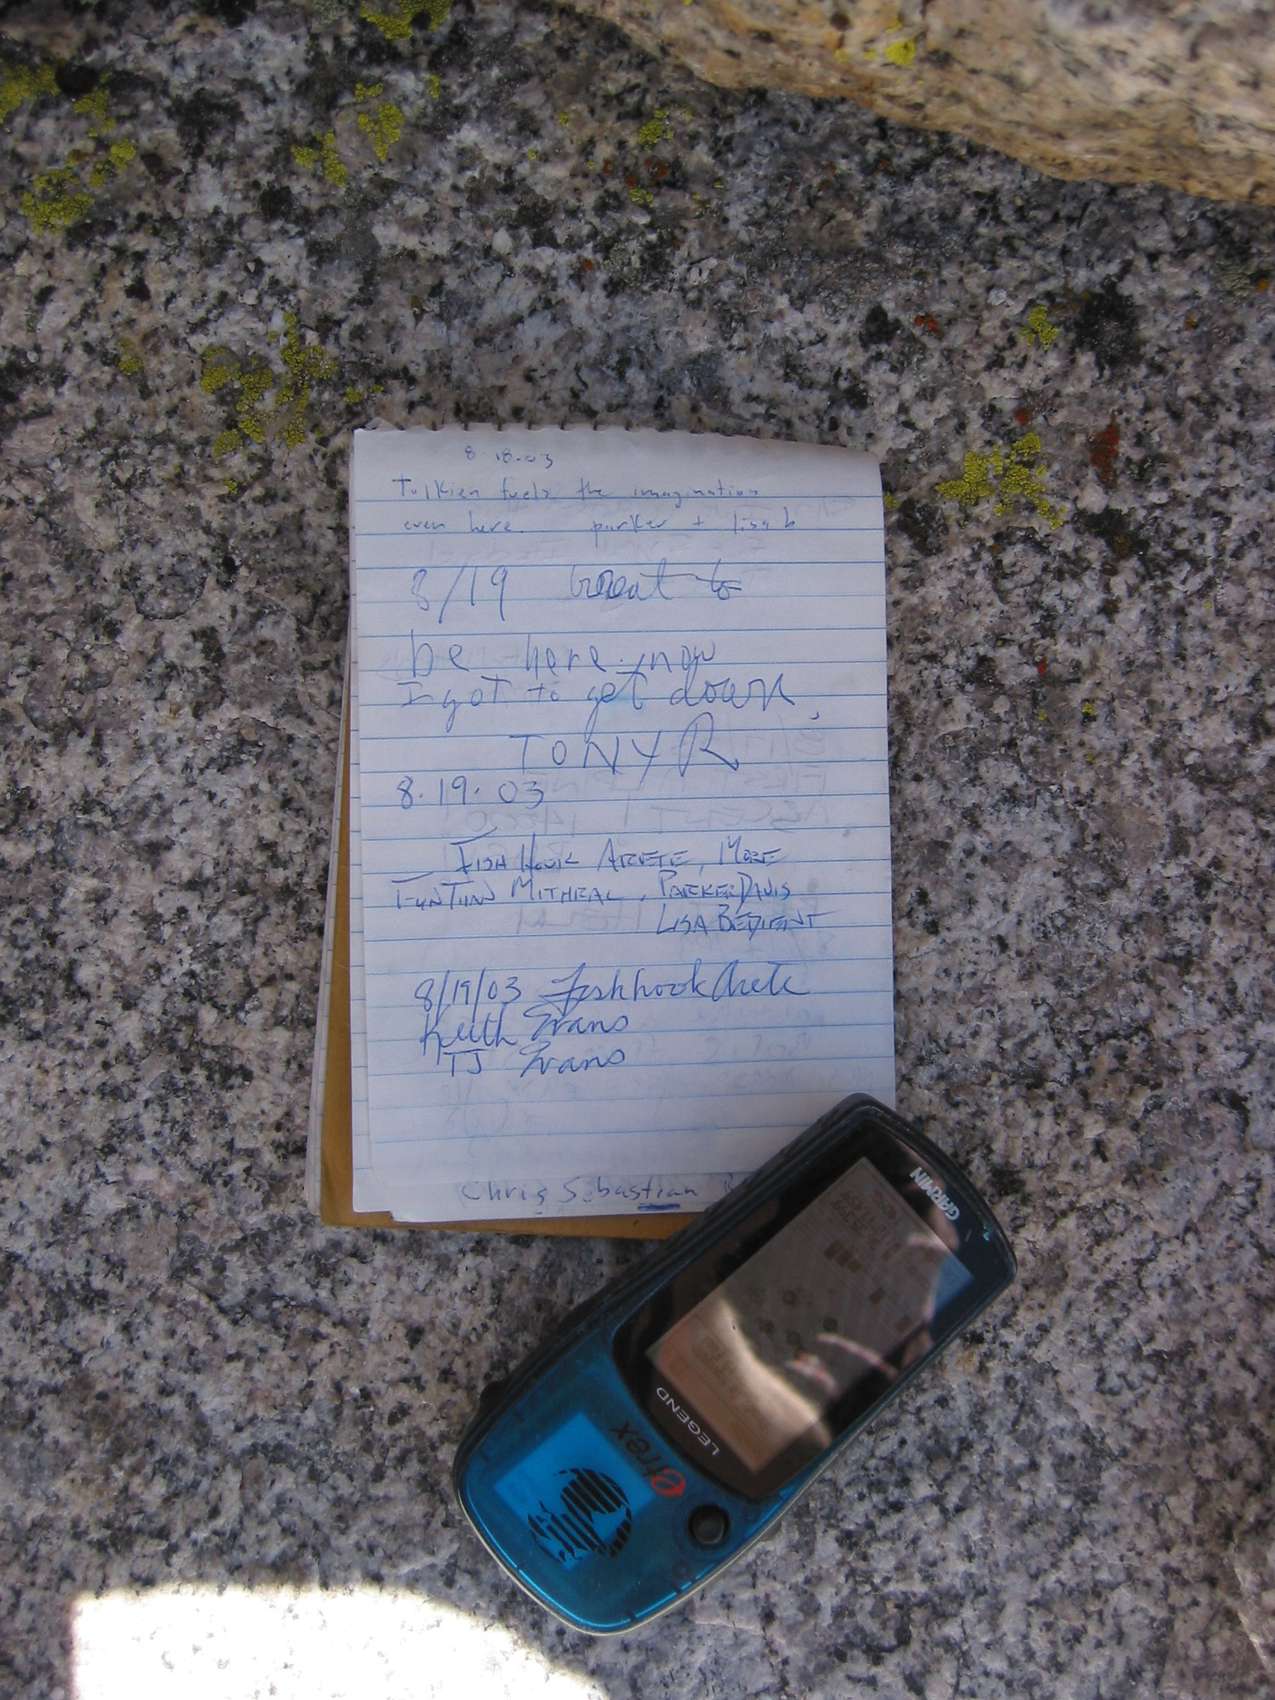 8.18.03
Tolkien fuels the imagination
even here. parker + lisa b
8/19 Great to
be here, now
I got to get down,
TONY R
8.19.03
FISH HOOK ARETE, MORE
FUN THAN MITHRAL, PARKER DAVIS
LISA BEDIENT
8/19/03 Fishhook Arete
Keith Evans
TJ Evans
Chris Sebastian
GARMIN
LEGEND
etrex